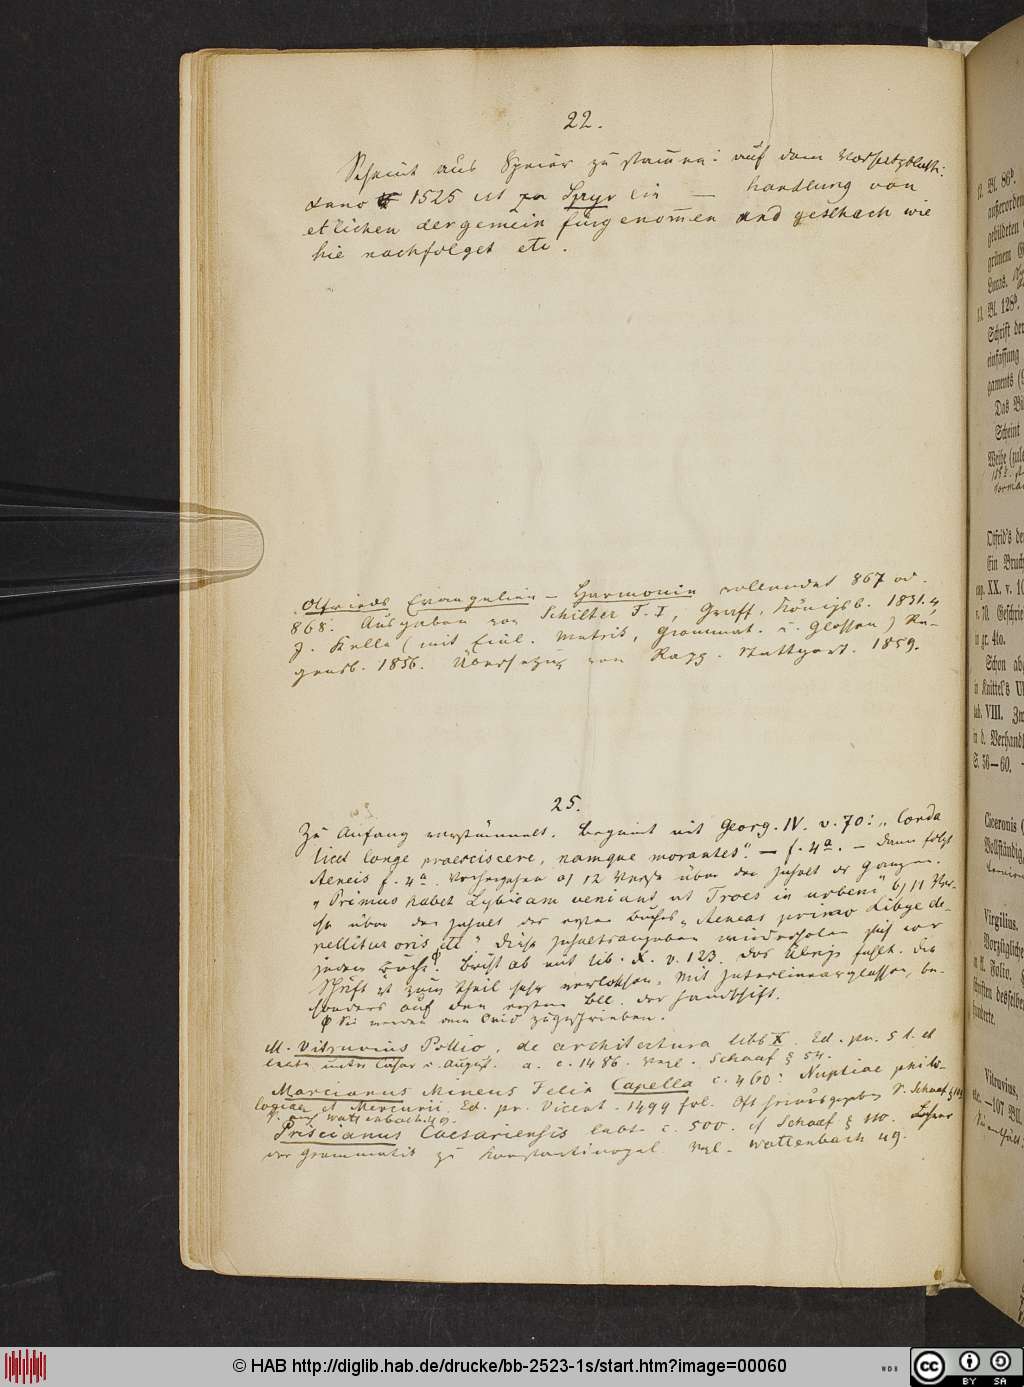 22.
Scheint aus Speier zu stammen: auf dem Vorsetzblatt:
Anno 1525 ist zu Speyr ein — handlung von
etlichen der gemein fürgenom̄en and geschach wie
hie nachfolget etc.
Otfrieds Evangelien-Harmonie vollendet 867 od.
868. Ausgaben von Schilter T. I, Graff, Königsb. 1831. 4
J. Kelle (mit Einl. Metrik, Grammat. u. Glossen) Re-
gensb. 1856. Übersetzung von Rapp. Stuttgart. 1859.
25.
Zu Anfang verstümmelt. Beginnt mit Georg. IV. v. 70: „Corda
licet longe praesciscere, namque morantes". — f. 4a. — Dann folgt
Aeneis f. 4a. Vorhergehen a) 12 Verse über den Inhalt des Ganzen.
„Primus habet Lybicam veniant ut Troes in urbem" b) 11 Ver-
se über den Inhalt des ersten Buches „Aeneas primo Libye de-
pellitur oris etc" Diese Inhaltsangaben wiederholen sich vor
jedem Buche. Bricht ab mit lib. X. v. 123. Das Übrige fehlt. Die
Schrift ist zum Theil sehr verloschen. Mit Interlinearglossen, be-
sonders auf den ersten Bll. der Handschift.
Sie werden dem Ovid zugeschrieben.
M. Vitruvius Pollio, de architectura libb X. Ed. pr. s. l. et
a. c. 1486. Vergl. Schaaf § 54.
lebte unter Cäsar u. August.
Marcianus Mineus Felix Capella c. 460: Nuptiae philo-
logiae et Mercurii. Ed. pr. Vicent. 1499 fol. Oft herausgegeben S. Schaaf §
S. auch Wattenbach 49.
Priscianus Caesariensis lebte c. 500. cf Schaaf § 110. Lehrer
der Grammatik zu Konstantinopel. Vgl. Wattenbach 49.
12. Bl. 86b.
außerorden
gebildeten
grünem G
Horas.
13. Bl. 128b.
Schrift der
einfassung
gaments (
Das Bü
Scheint
Weihe (zule
Otfrid's de
Ein Bruch
cap. XX. v. 10
v. 70. Geschrie
in gr. 4to.
Schon abg
in Knittel's Ul
tab. VIII. Zer
in d. Verhandl
S. 56—60.
Ciceronis
Vollständig
Virgilius.
Vorzüglich
in kl. Folio.
schriften desselbe
hunderte.
Vitruvius,
etc. —107 Bll.
© HAB http://diglib.hab.de/drucke/bb-2523-1s/start.htm?image=00060
WDB
cc BY SA